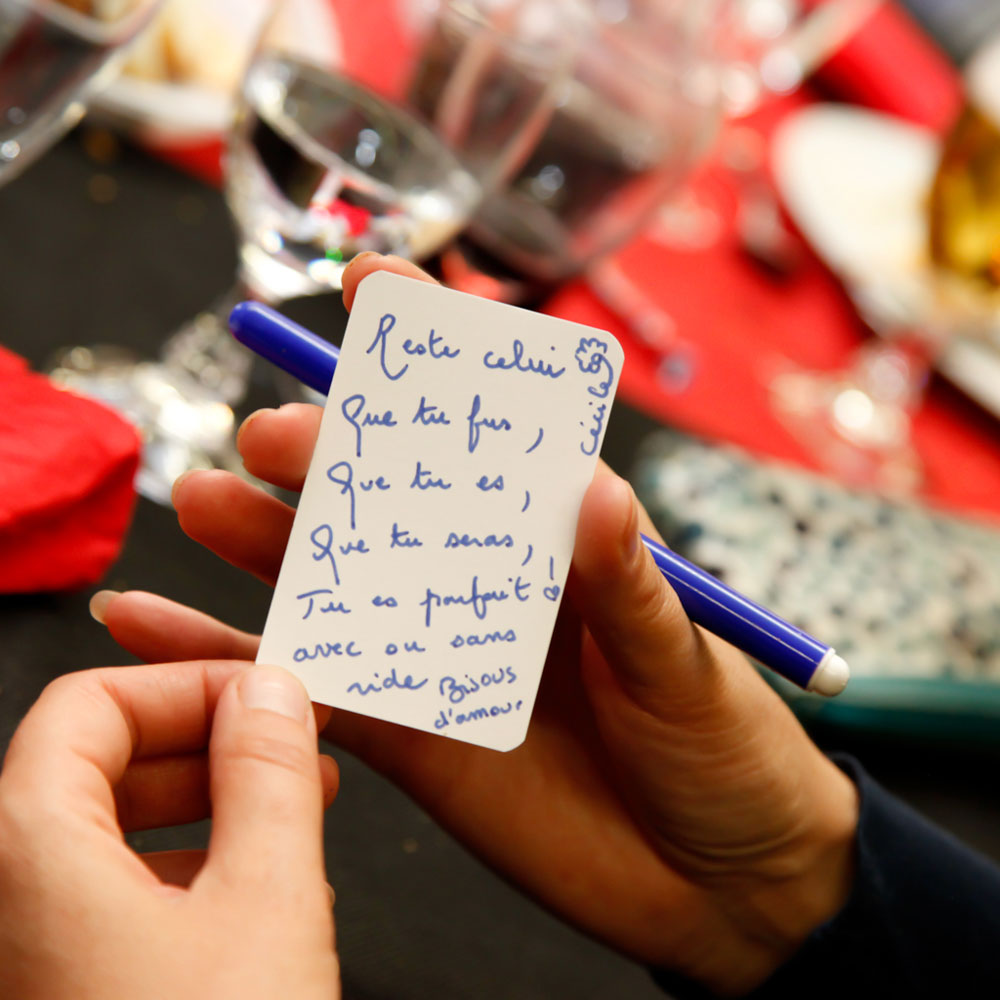 Reste celui
Que tu fus,
Que tu es,
Que tu seras,
Tu es parfait !
avec ou sans
ride Bisous
d'amour
Cécile